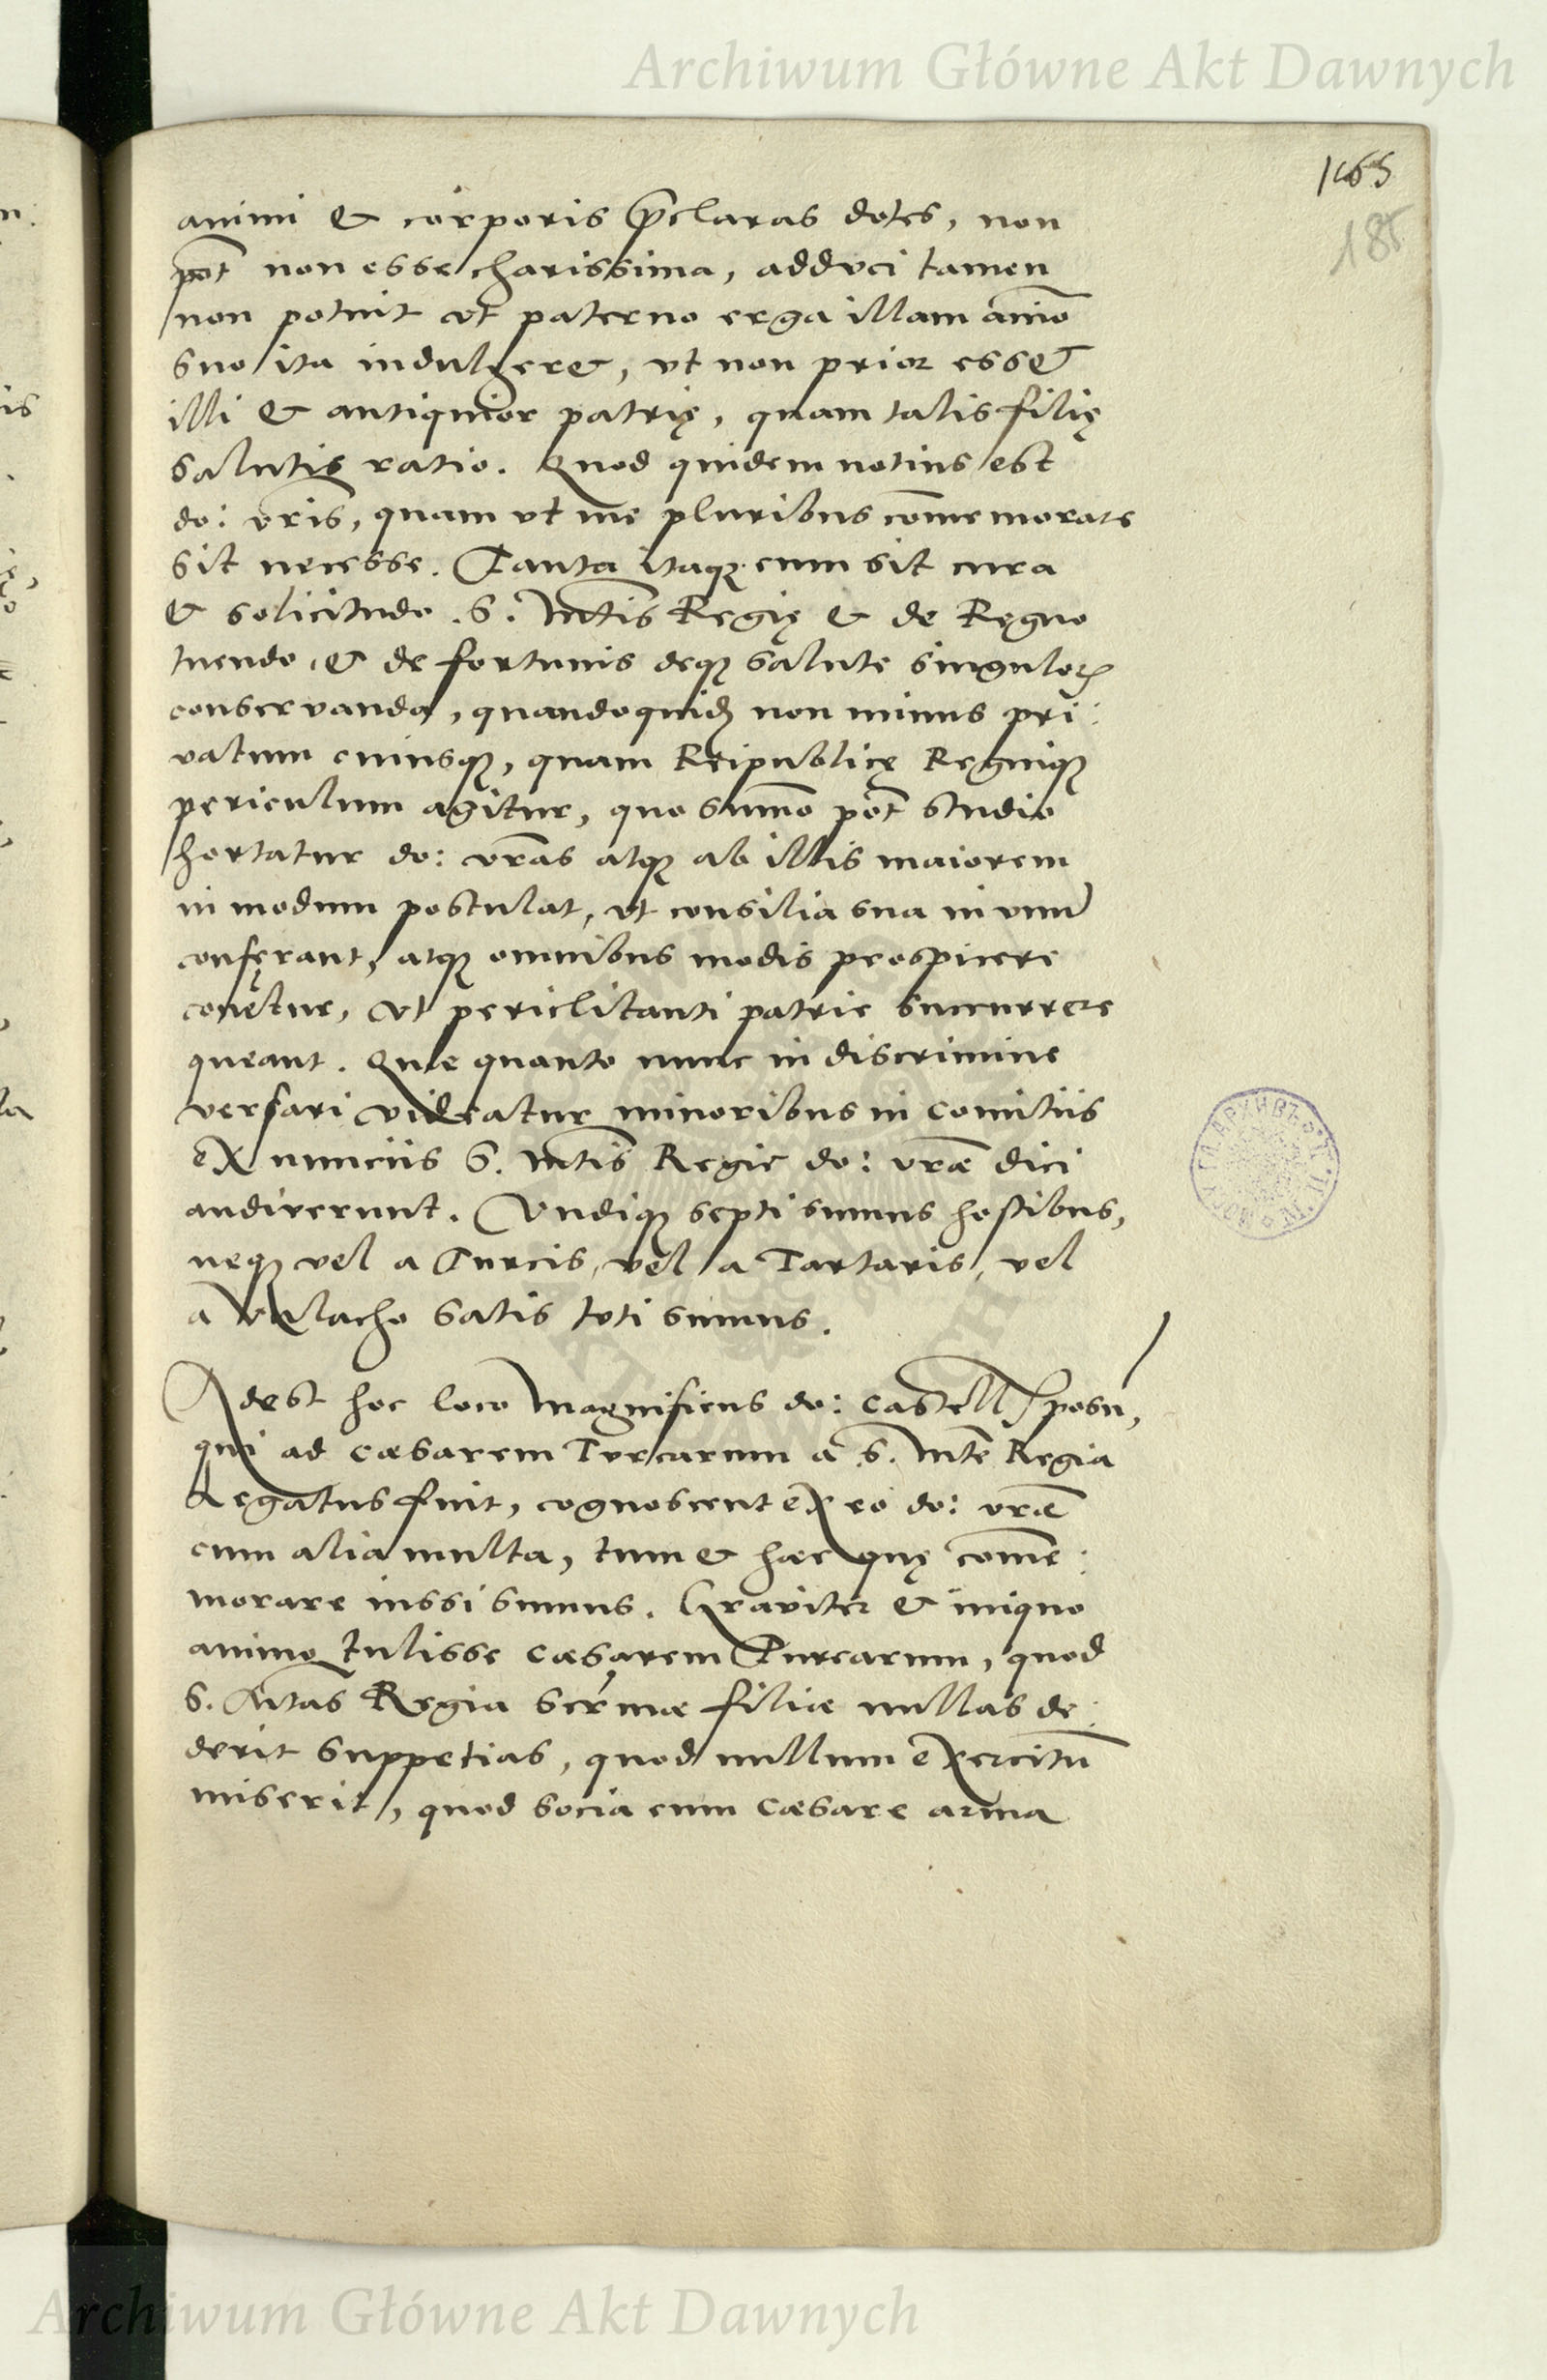 Archiwum Główne Akt Dawnych
1465
185
animi & corporis p̄claras dotes, non
pōt non esse charissima, adduci tamen
non potuit ut paterno erga illam aīmo
suo ita indulgeret, ut non prior esset
illi & antiquior patrię, quam talis filię
salutis ratio. Quod quidem notius est
do: vr̄is, quam ut me pluribus com̄emorare
sit necesse. Tanta itaqꝫ cum sit cura
& solicitudo S. Mtīs Regię & de Regno
tuendo, & de fortunis deqꝫ salute singuloꝝ
conservanda, quandoquidꝫ non minus pri:
vatum cuiusqꝫ, quam Reipublicę Regniqꝫ
periculum agitur, quo sum̄o pōt studio
hortatur do: vr̄as atqꝫ ab illis maiorem
in modum postulat, ut consilia sua in unū
conferant, atqꝫ omnibus modis prospicere
conētur, ut periclitanti patrie succurrere
queant. Que quanto nunc in discrimine
versari videatur minoribus in comitiis
ex nunciis S. Mtīs Regie do: vr̄æ dici
audiverunt. Undiqꝫ septi sumus hostibus,
neqꝫ vel a Turcis, vel a Tartaris, vel
a Valacho satis tuti sumus.
Adest hoc loco Magnificus do: Castell: posn̄,
qui ad cæsarem Turcarum a S. Mtē Regia
Legatus fuit, cognoscent ex eo do: vr̄æ
cum alia multa, tum & hæc quę com̄e:
morare iussi sumus. Graviter & iniquo
animo tulisse cæsarem Turcarum, quod
S. Mtas Regia Serm̄æ filiæ nullas de:
derit suppetias, quod nullum exercitū
miserit, quod socia cum cæsare arma
Archiwum Główne Akt Dawnych